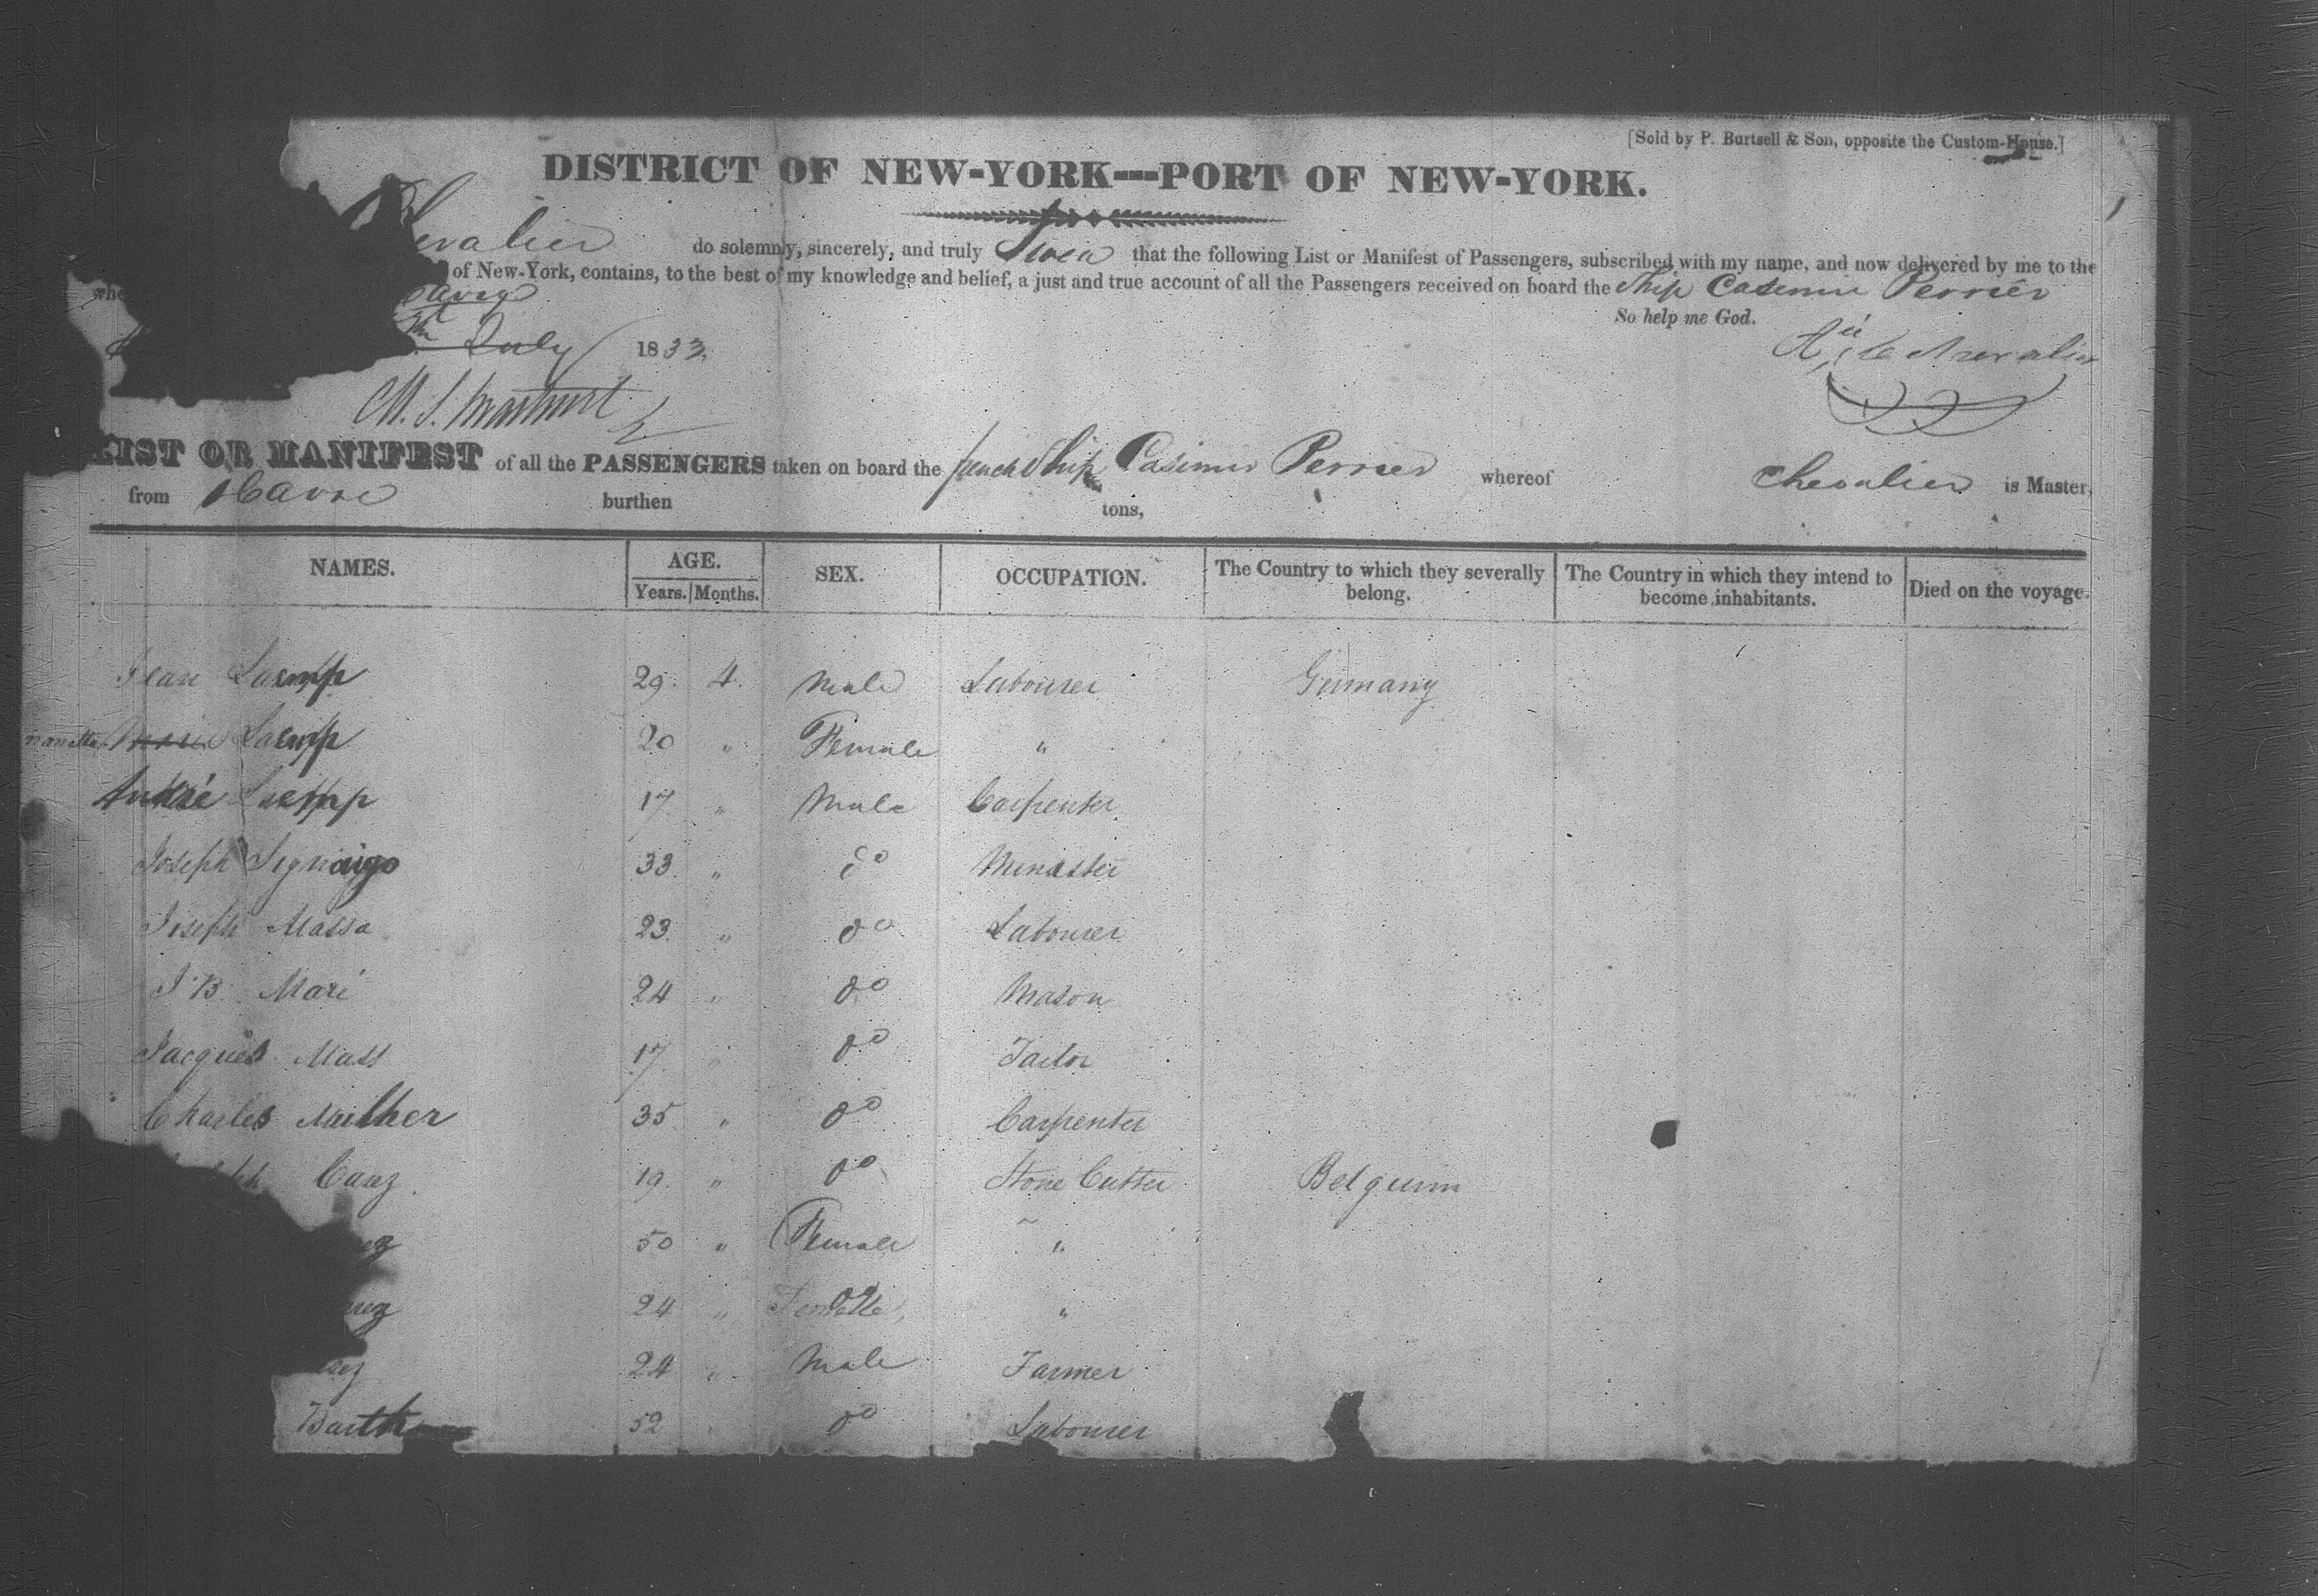 [Sold by P. Burtsell & Son, opposite the Custom-House.]
DISTRICT OF NEW-YORK---PORT OF NEW-YORK.
do solemnly, sincerely, and truly Swear that the following List or Manifest of Passengers, subscribed with my name, and now delivered by me to the
of New-York, contains, to the best of my knowledge and belief, a just and true account of all the Passengers received on board the Ship Casimir Perrier
So help me God.
July 1833
LIST OR MANIFEST of all the PASSENGERS taken on board the french Ship Casimir Perrier whereof Chevalier is Master,
from Havre burthen tons,
NAMES. AGE. SEX. OCCUPATION. The Country to which they severally belong. The Country in which they intend to become inhabitants. Died on the voyage.
Years. Months.
Jean Laemp 29 4 Male Labourer Germany
Laemp 20 " Female "
André Laemp 17 " Male Carpenter
Joseph Signaigo 33 " do
Joseph Massa 23 " do Labourer
J B Maré 24 " do Mason
Jacques 17 " do Tailor
Charles 35 " do Carpenter
19 " do Stone Cutter Belgium
50 " Female "
24 " do "
24 " Male Farmer
Barth 52 do Labourer